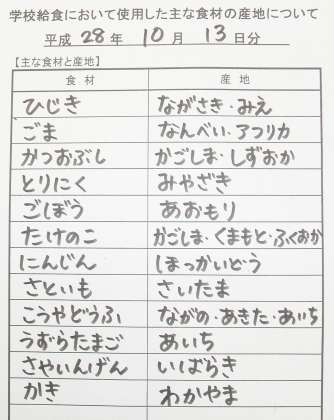 学校給食において使用した主な食材の産地について
平成 28 年 10 月 13 日分
【主な食材と産地】
食 材　産 地
ひじき　ながさき・みえ
ごま　なんべい・アフリカ
かつおぶし　かごしま・しずおか
とりにく　みやざき
ごぼう　あおもり
たけのこ　かごしま・くまもと・ふくおか
にんじん　ほっかいどう
さといも　さいたま
こうやどうふ　ながの・あきた・あいち
うずらたまご　あいち
さやいんげん　いばらき
かき　わかやま